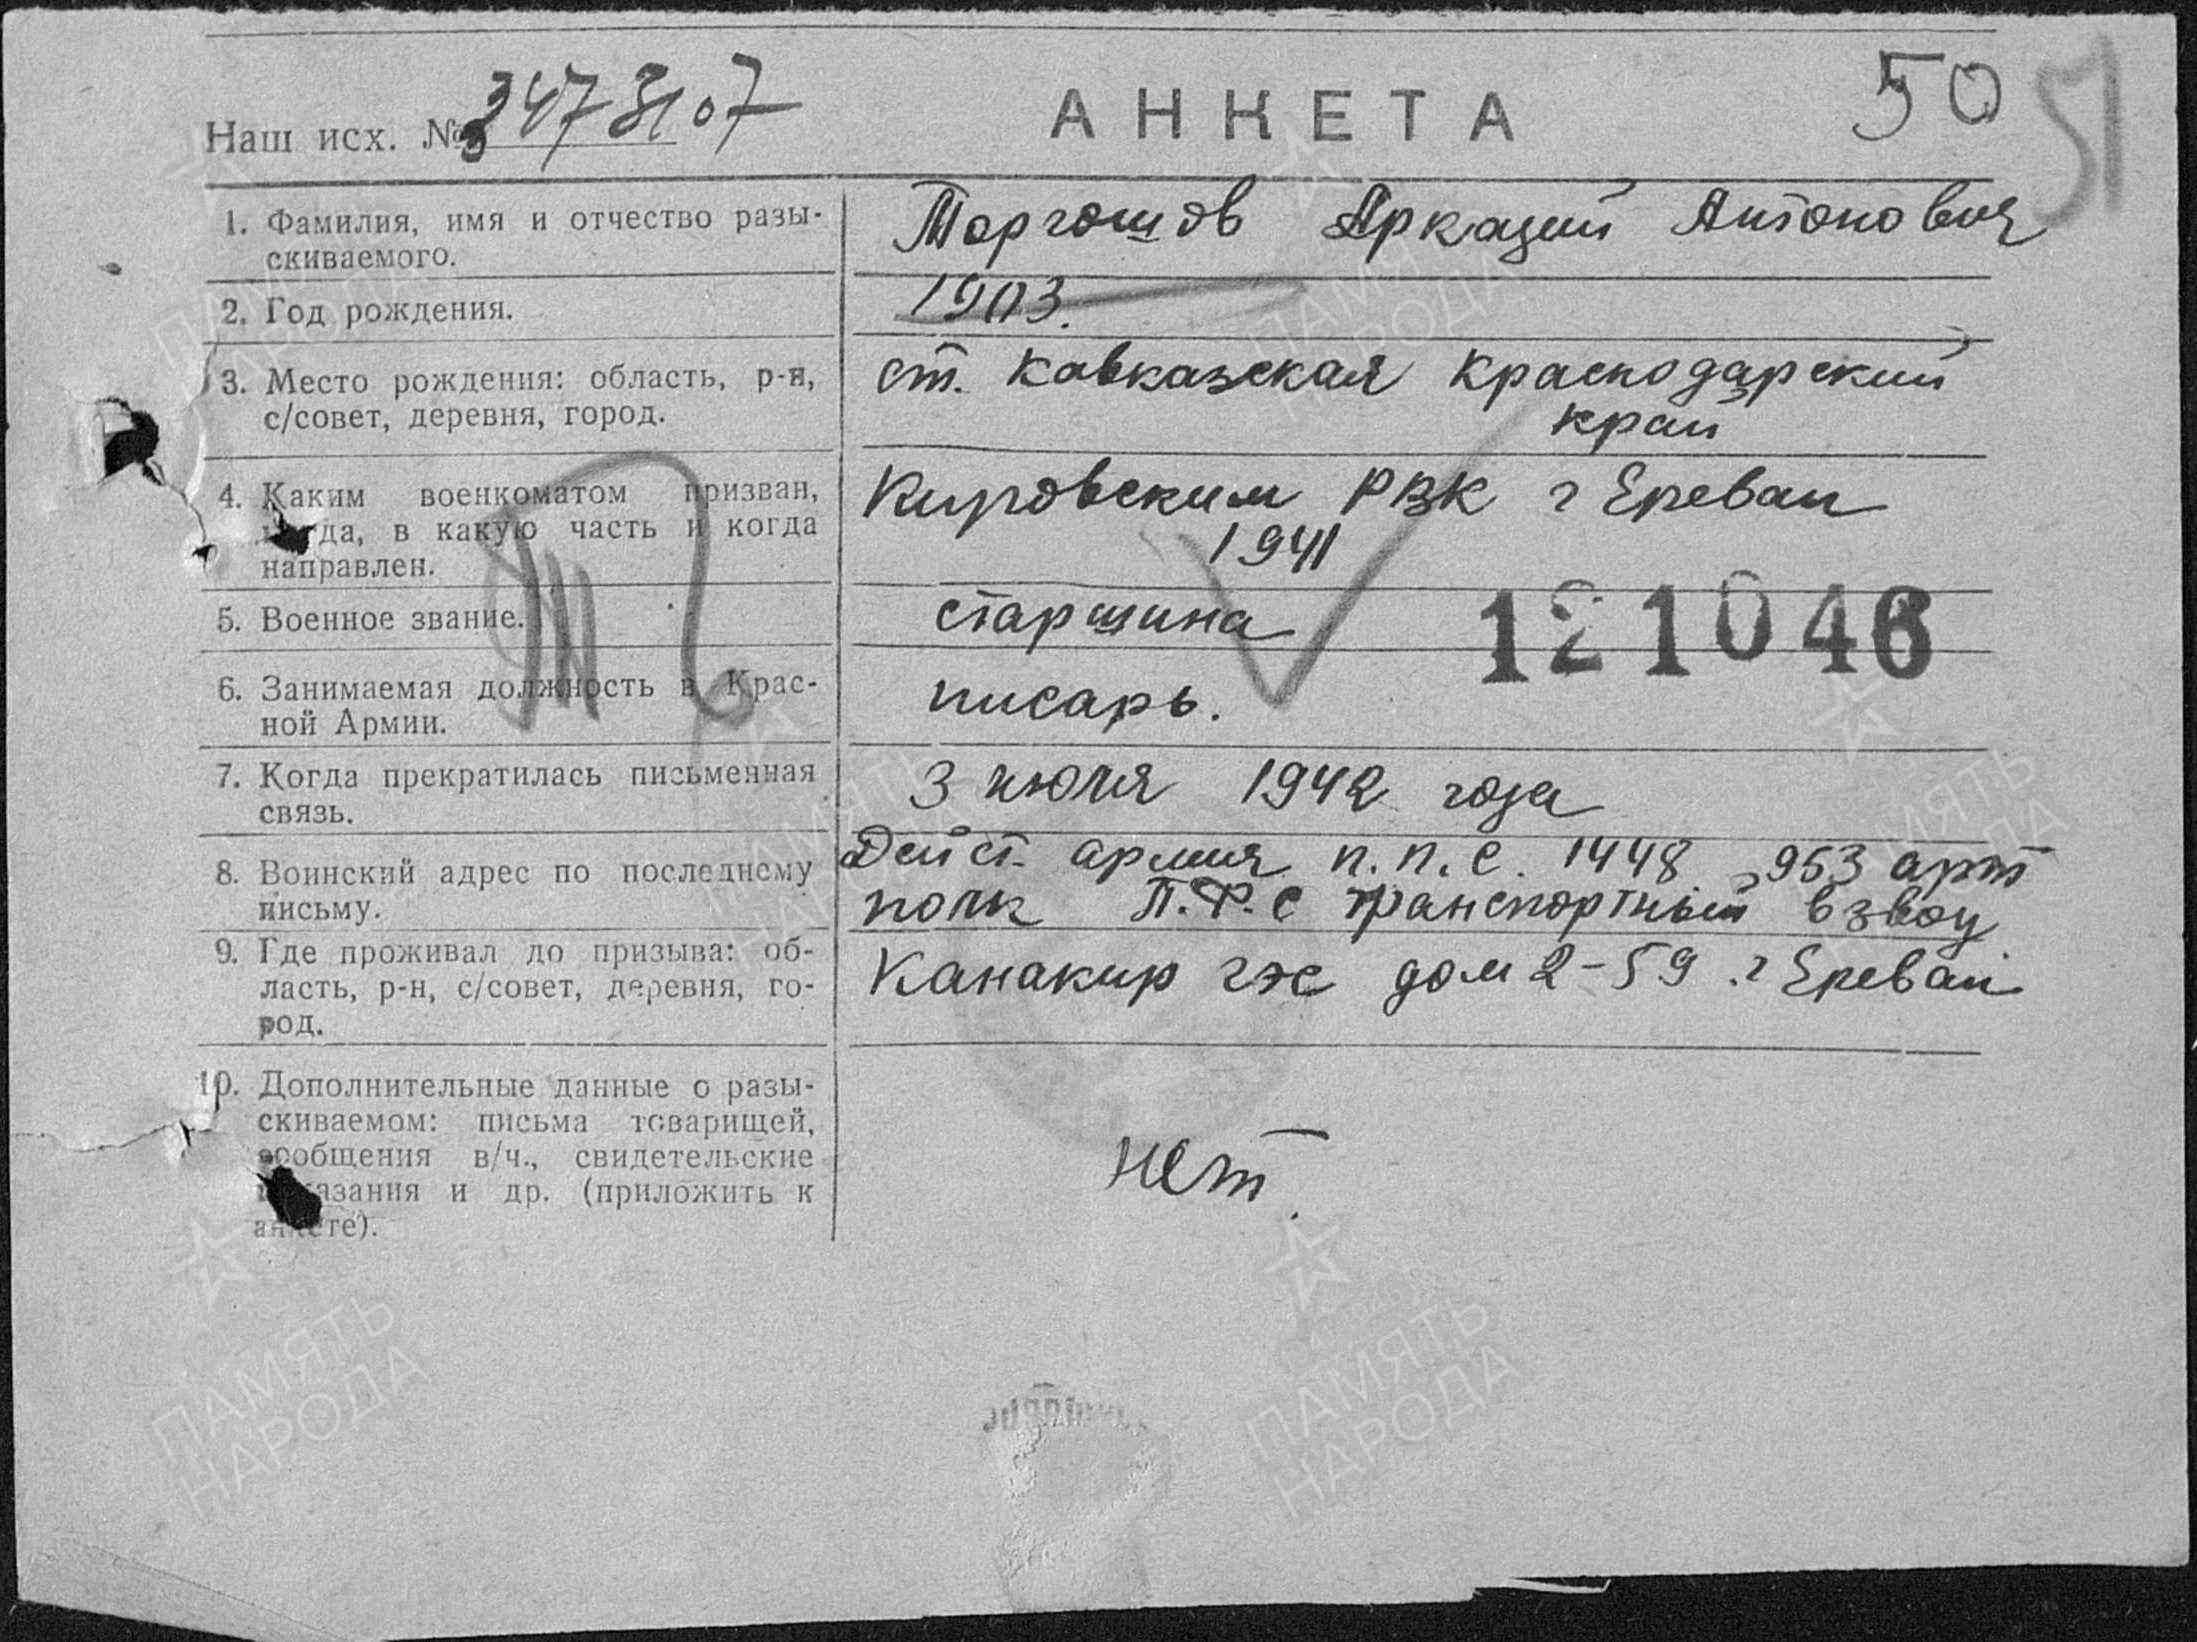 50 51
Наш исх. № АНКЕТА
1. Фамилия, имя и отчество разы-
скиваемого.
Торгошов Аркадий Антонович
2. Год рождения.
1903.
3. Место рождения: область, р-н,
с/совет, деревня, город.
ст. Кавказская Краснодарский
край
4. Каким военкоматом призван,
в какую часть и когда
направлен.
Кировским РВК г Ереван
1941
5. Военное звание.
старшина
121046
6. Занимаемая должность в Крас-
ной Армии.
писарь.
7. Когда прекратилась письменная
связь.
3 июля 1942 года
8. Воинский адрес по последнему
письму.
Дейст. армия п.п.с. 1448, 953 арт
полк П.Ф.С транспортный взвод
9. Где проживал до призыва: об-
ласть, р-н, с/совет, деревня, го-
род.
Канакир гэс дом 2-59 г Ереван
10. Дополнительные данные о разы-
скиваемом: письма товарищей,
сообщения в/ч., свидетельские
показания и др. (приложить к
анкете).
нет.
ПАМЯТЬ
НАРОДА
ПАМЯТЬ
НАРОДА